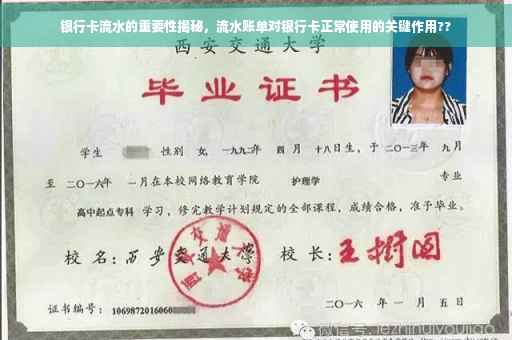 银行卡流水的重要性揭秘，流水账单对银行卡正常使用的关键作用??
西安交通大学
毕业证书
学生 性别 女，一九九二年 四月 十八日生，于二〇一三年 九月
至 二〇一六年 一月在本校网络教育学院 护理学 专业
高中起点专科 学习，修完教学计划规定的全部课程，成绩合格，准予毕业。
校名：西安交通大学 校长：王树国
西安交通大学
证书编号：1069872016060
二〇一六年 一月 五日
微信号: jezhinuiyoujiao